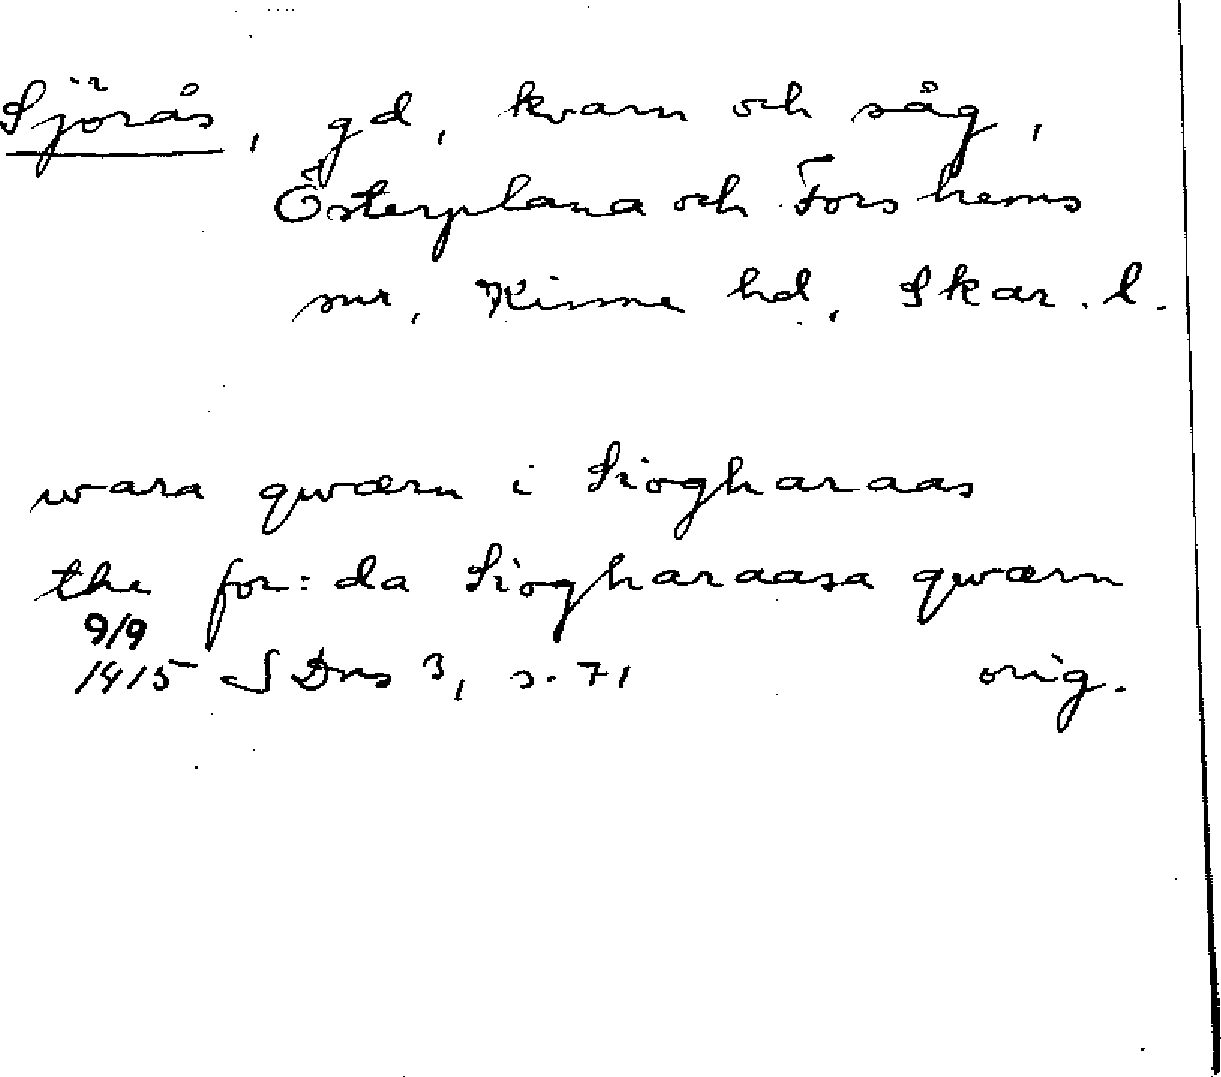 Sjörås, gd, kvarn och såg,
Österplana och Forshems
snr, Kinne hd, Skar. l.
wara qwærn i Siogharaas
the for:da Siogharaasa qwærn
9/9
1415 SDns 3, s. 71 orig.